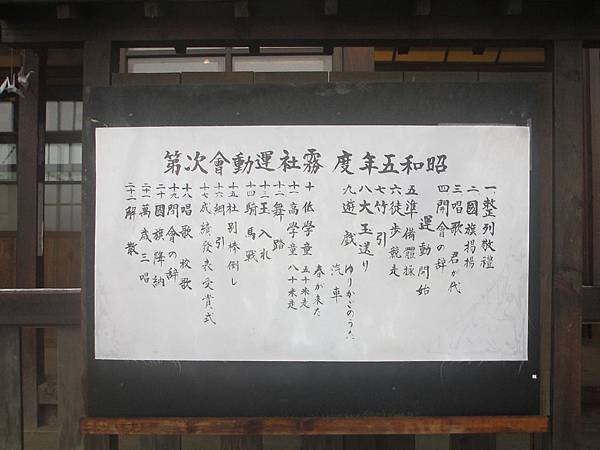 昭和五年度 霧社運動會次第
一 整列敬禮
二 國旗揭揚
三 唱歌 君が代
四 開會の辞
運動開始
五 準備體操
六 徒歩競走
七 竹引
八 大玉送り
九 遊戯 ゆりかごのうた
汽車
春が来た
十 低學童 五十米走
十一 高學童 八十米走
十二 舞踏
十三 玉入札
十四 騎馬戦
十五 社別棒倒し
十六 綱引
十七 成績發表受賞式
十八 唱歌 校歌
十九 閉會の辞
二十 國旗降納
二十一 萬歳三唱
二十二 解散